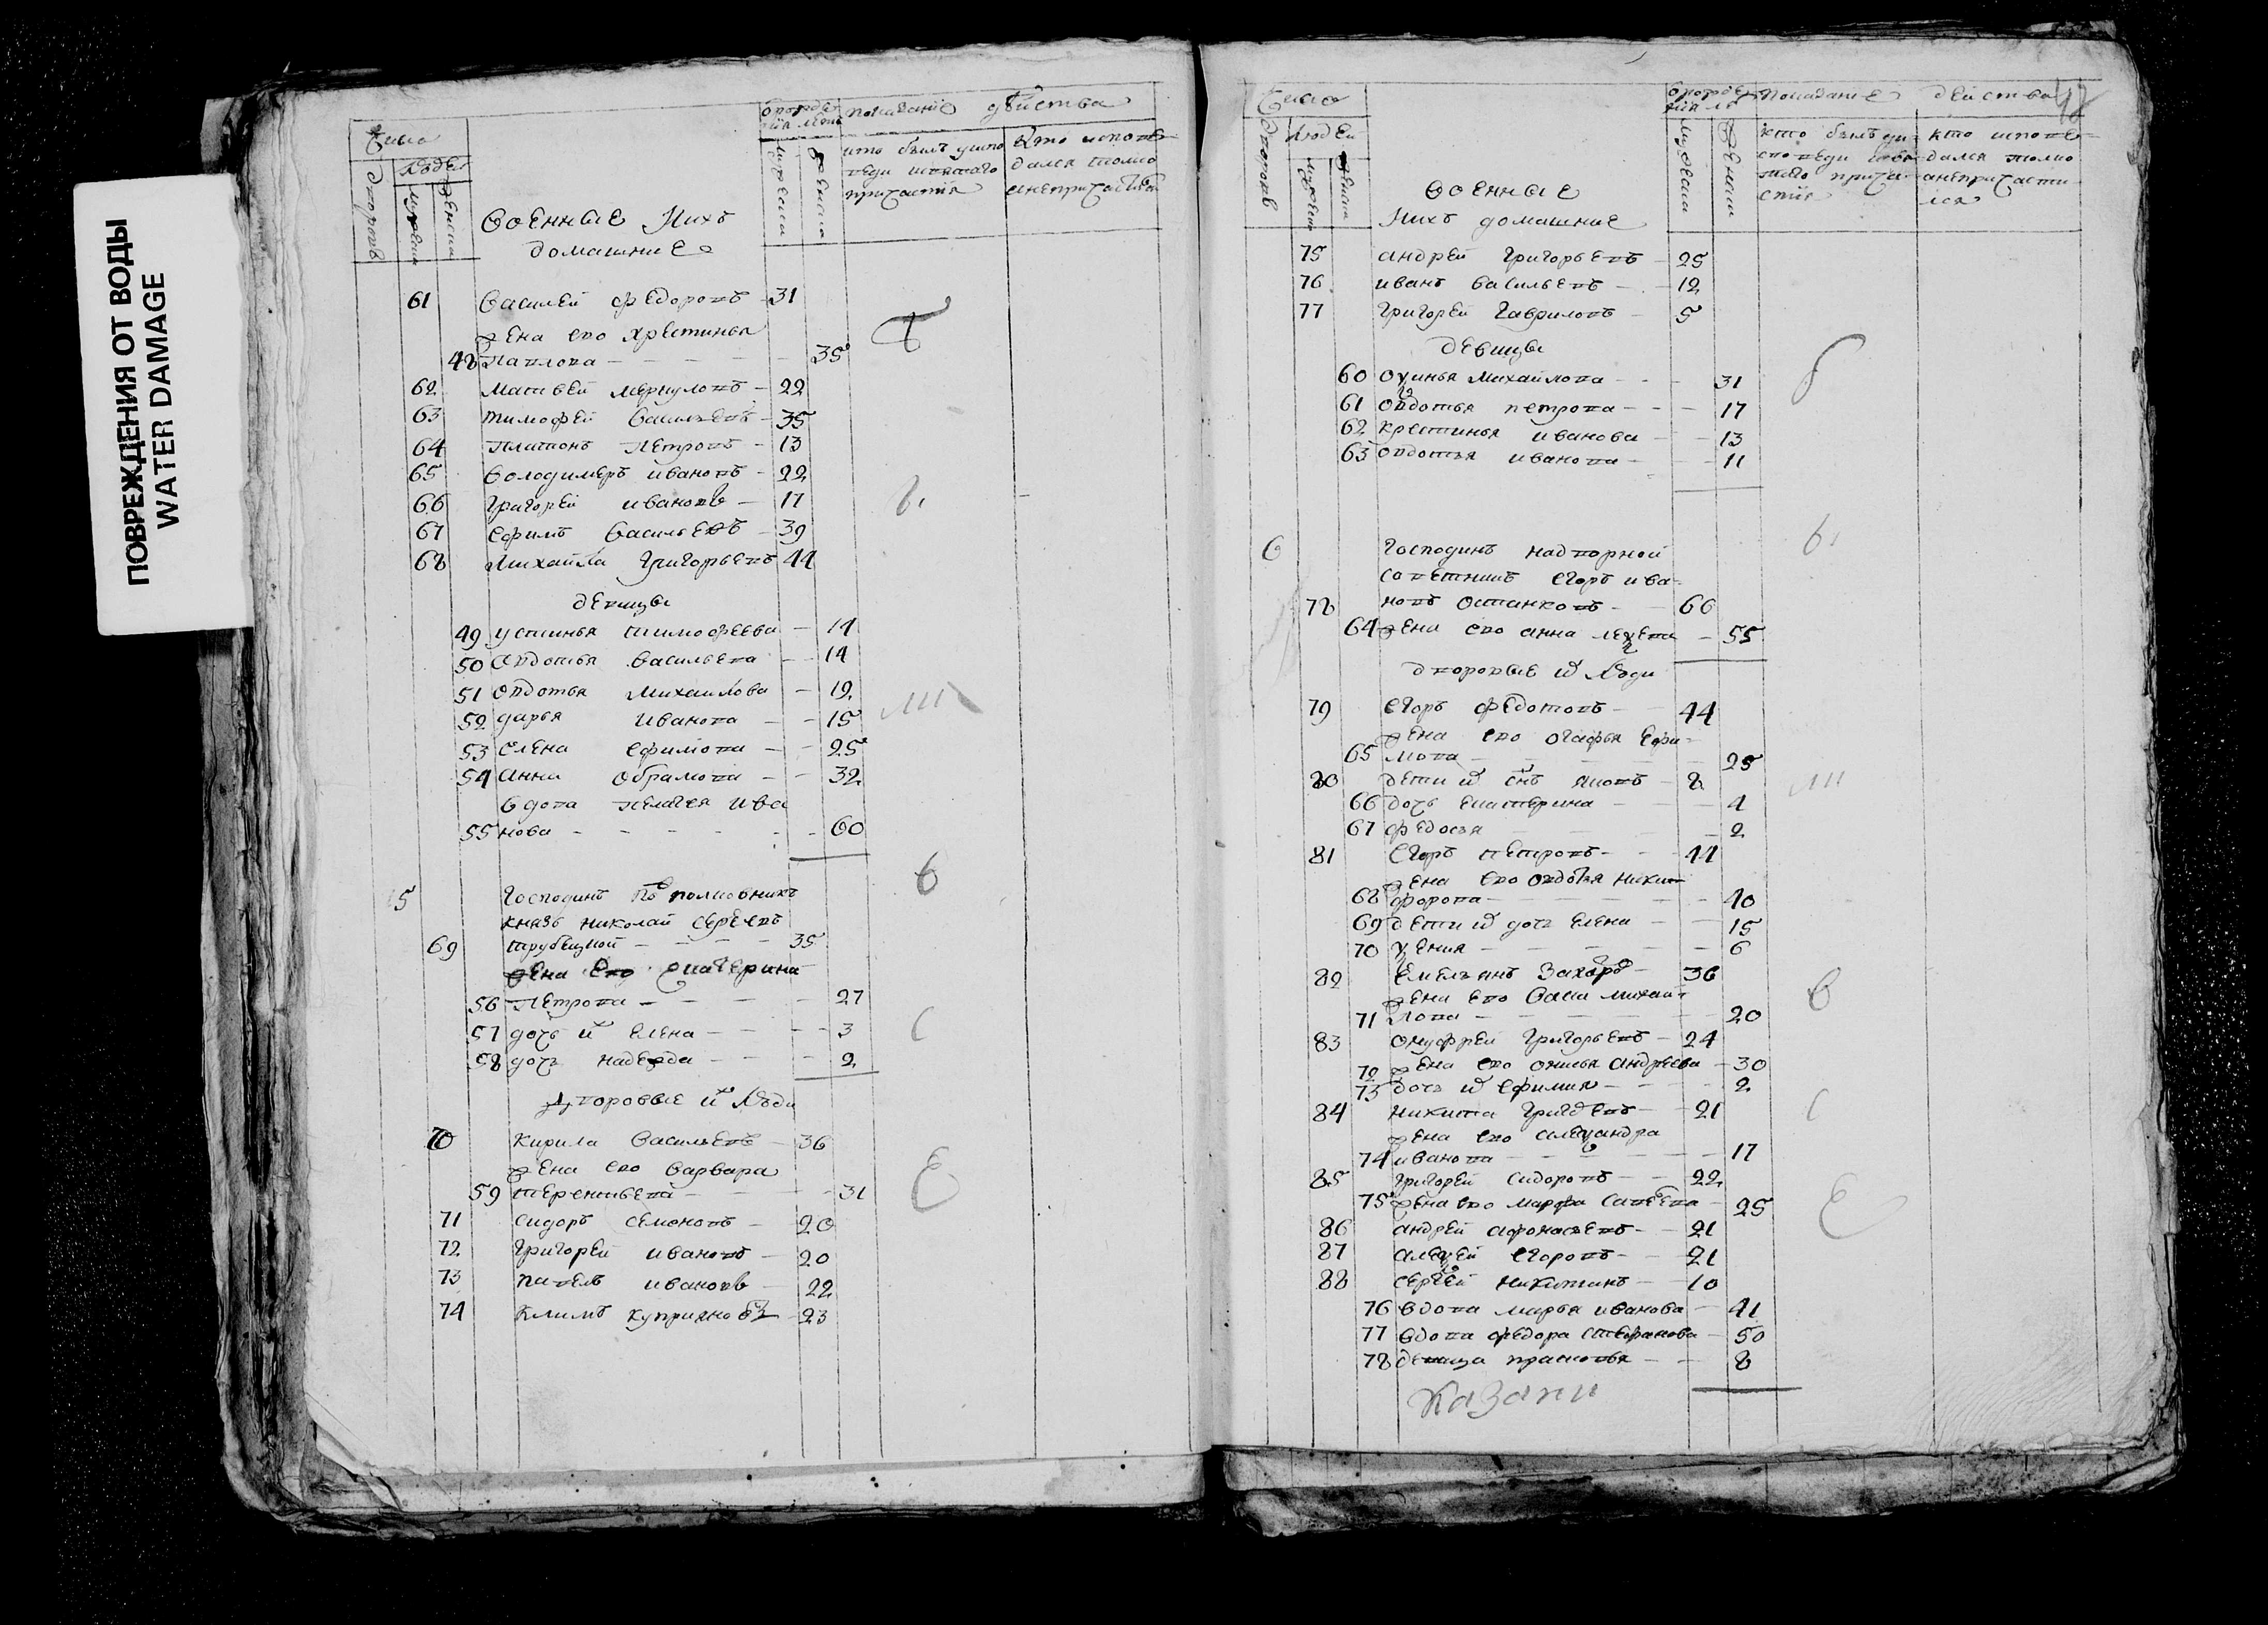 ПОВРЕЖДЕНИЯ ОТ ВОДЫ
WATER DAMAGE
Число
дворовъ
людей
мужеска
женска
Военные и ихъ
домашние
от рождения лета
мужеска
женска
показание действа
кто былъ у испо
веди и святаго
причастiя
кто испове
дался толко
а не причастился
61 Василей Федоровъ - 31
жена ево Христинья
48 Павлова - 35
62 Матвей Меркуловъ - 22
63 Тимофей Васильевъ - 35
64 Платонъ Петровъ - 13
65 Володимеръ Ивановъ - 22
66 Григорей Ивановъ - 17
67 Ефимъ Васильевъ - 39
68 Михайла Григорьевъ 44
девицы
49 Устинья Тимофеева - 14
50 Авдотья Васильева - 14
51 Овдотья Михайлова - 12
52 Дарья Иванова - 15
53 Елена Ефимова - 25
54 Анна Обрамова - 32
вдова Пелагея Ива
55 нова - 60
5 Господинъ пъ полковникъ
князь Николай Сергеевъ
69 Трубецкой - 35
жена ево Екатерина
56 Петрова - 27
57 дочь их Елена - 3
58 дочь Надежда - 2
Дворовые их люди
70 Кирила Васильевъ - 36
жена ево Варвара
59 Терентьева - 31
71 Сидоръ Семоновъ - 20
72 Григорей Ивановъ - 20
73 Павелъ Ивановъ - 22
74 Климъ Куприяновъ - 23
Число
дворовъ
людей
мужеска
женска
Военные
и ихъ домашние
от рождения лет
мужеска
женска
показание действа
кто былъ у и
споведи и свя
таго прича
стiя
кто испове
дался толко
а не причасти
лся
75 Андрей Григорьевъ - 25
76 Иванъ Васильевъ - 12
77 Григорей Гавриловъ - 5
девицы
60 Михайлова - 31
61 Овдотья Петрова - 17
62 Крестинья Иванова - 13
63 Овдотья Иванова - 11
6 Господинъ надворной
советникъ Егоръ Ива
78 новъ Останковъ - 66
64 жена ево Анна - 55
дворовые их люди
79 Егоръ Федотовъ - 44
жена ево Огафья Ефи
65 мова - 25
80 дети их снъ Яковъ - 8
66 дочь Екатерина - 4
67 Федосья - 2
81 Егоръ Петровъ - 44
жена ево Овдотья Ники
68 форова - 40
69 дети их дочь Елена - 15
70 - 6
82 Емельянъ Захаров - 36
жена ево Васа Михай
71 лова - 20
83 Онуфрей Григорьевъ - 24
72 жена ево Онисья Андреева - 30
73 дочь их Ефимия - 2
84 Никита - 21
жена ево Алеѯандра
74 Иванова - 17
85 Григорей Сидоровъ - 22
75 жена ево Марфа Савеева - 25
86 Андрей Афонасьевъ - 21
87 Алеѯей Егоровъ - 21
88 Сергей Никитинъ - 10
76 вдова Марья Иванова - 41
77 вдова Федора Стефанова - 50
78 девица Прасковья - 8
Казани